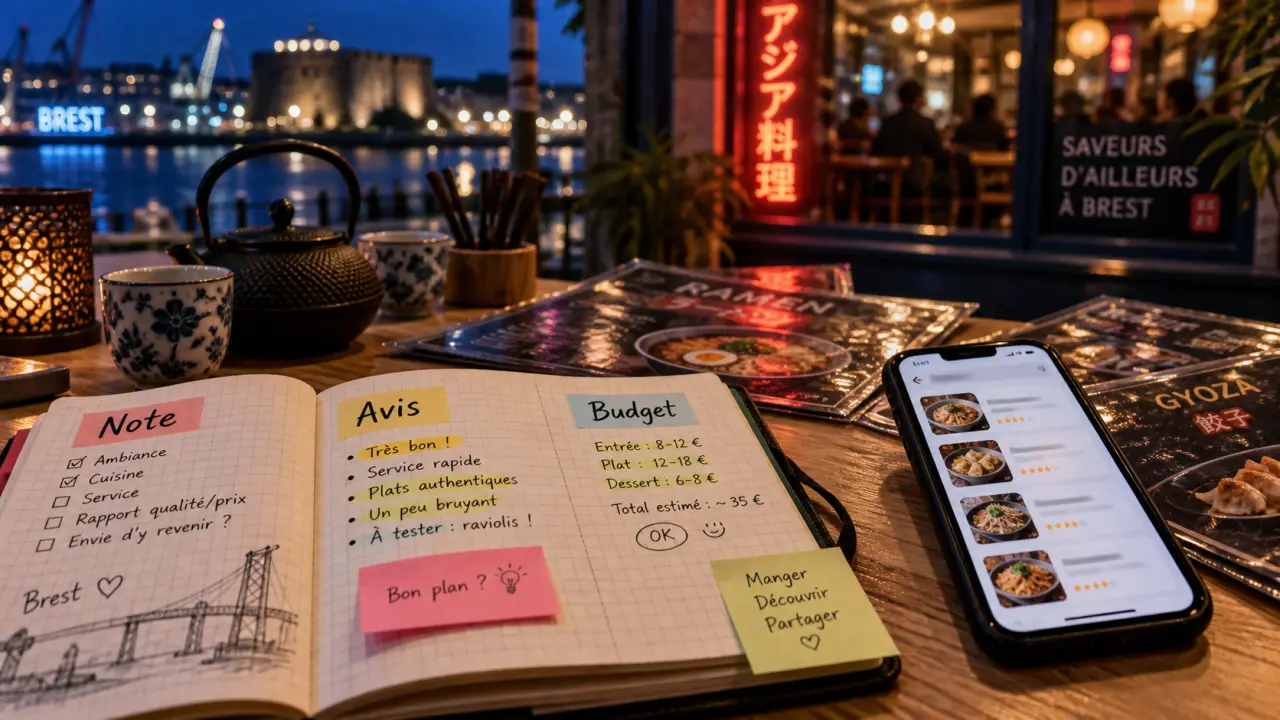 BREST
アジア料理
SAVEURS
D'AILLEURS
À BREST
RAMEN
GYOZA
餃子
Note
Ambiance
Cuisine
Service
Rapport qualité/prix
Envie d'y revenir ?
Brest ♡
Avis
• Très bon !
• Service rapide
• Plats authentiques
• Un peu bruyant
• À tester : raviolis !
Bon plan ?
Budget
Entrée : 8-12 €
Plat : 12-18 €
Dessert : 6-8 €
Total estimé : ~ 35 €
OK
Manger
Découvrir
Partager
♡